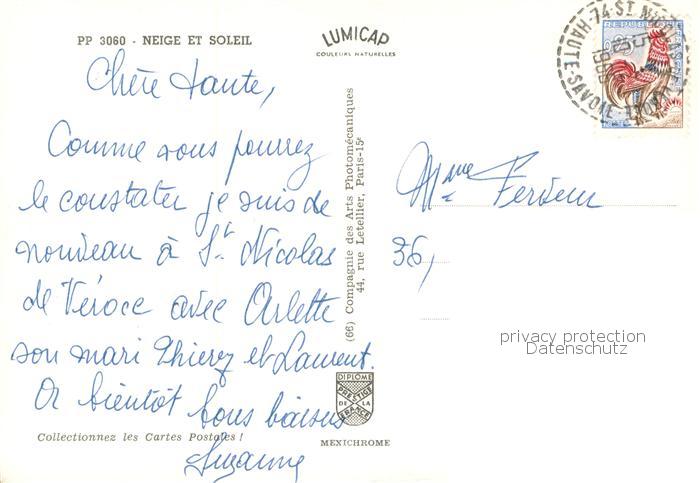 PP 3060 - NEIGE ET SOLEIL
LUMICAP
COULEURS NATURELLES
Chère tante,
Comme vous pourrez
le constater je suis de
nouveau à St. Nicolas
de Véroce avec Arlette
son mari Thierey et Laurent.
A bientôt bons baisers
Suzanne
Collectionnez les Cartes Postales !
DIPLOME
PRESTIGE
DE LA
FRANCE
MEXICHROME
(66) Compagnie des Arts Photomécaniques
44, rue Letellier, Paris-15e
74-ST NICOLAS
HAUTE-SAVOIE
REPUBLIQUE
Mme
36,
privacy protection
Datenschutz